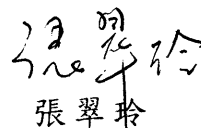 張翠玲
張翠玲